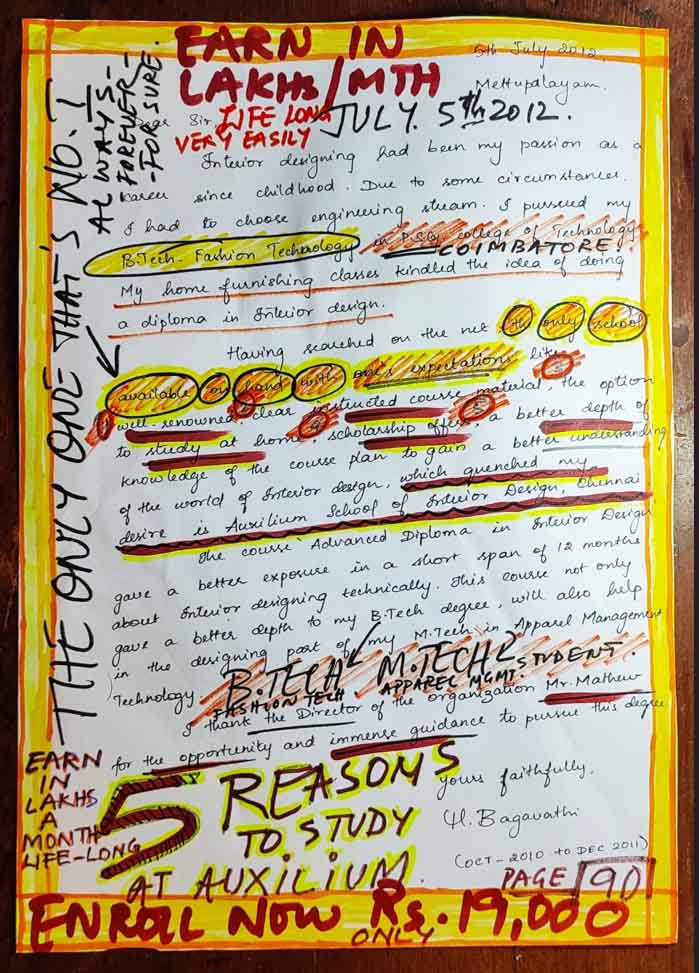 EARN IN
LAKHS/MTH
LIFE LONG
VERY EASILY
5th July 2012.
Mettupalayam.
JULY. 5TH 2012.
Sir,
Interior designing had been my passion as a
career since childhood. Due to some circumstances.
I had to choose engineering stream. I pursued my
B.Tech. Fashion Technology in P.S.G college of Technology
COIMBATORE.
My home furnishing classes kindled the idea of doing
a diploma in Interior design.
Having searched on the net, the only school
available on hand with one's expectations like
well-renowned, clear instructed course material, the option
to study at home, scholarship offer, a better depth of
knowledge of the course plan to gain a better understanding
of the world of Interior design, which quenched my
desire is Auxilium School of Interior Design, Chennai
The course Advanced Diploma in Interior Design
gave a better exposure in a short span of 12 months
about Interior designing technically. This course not only
gave a better depth to my B.Tech degree, will also help
in the designing part of my M.Tech in Apparel Management
Technology
B.TECH M.TECH
FASHION TECH APPAREL MGMT. STUDENT.
I thank the Director of the organization Mr. Mathew
for the opportunity and immense guidance to pursue this degree
yours faithfully,
H. Bagavathi
(OCT-2010 to DEC 2011)
5 REASONS
TO STUDY
AT AUXILIUM.
PAGE 90
THE ONLY ONE THAT'S NO.1
ALWAYS-
FOREVER-
-FOR SURE.
EARN
IN
LAKHS
A
MONTH
LIFE-LONG
ENROLL NOW Rs. 19,000
ONLY